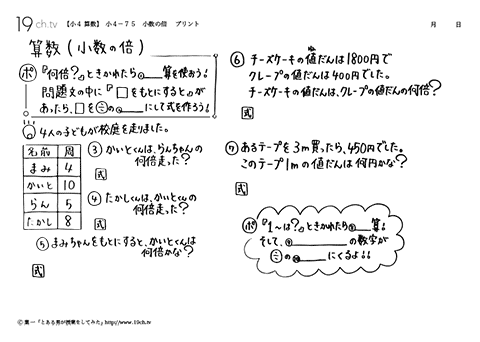 19ch.tv 【小4 算数】 小4-75 小数の倍 プリント 月 日
算数(小数の倍)
ポ 『何倍?』ときかれたら①___算を使おう!
問題文の中に『□をもとにすると』が
あったら、□を÷の②___にして式を作ろう!
4人の子どもが校庭を走りました。
名前 周
まみ 4
かいと 10
らん 5
たかし 8
③ かいとくんは、らんちゃんの
何倍走った?
式
④ たかしくんは、かいとくんの
何倍走った?
式
⑤ まみちゃんをもとにすると、かいとくんは
何倍かな?
式
⑥ チーズケーキの値だんは1800円で
クレープの値だんは400円でした。
チーズケーキの値だんは、クレープの値だんの何倍?
式
⑦ あるテープを3m買ったら、450円でした。
このテープ1mの値だんは何円かな?
式
ポ 『1~は?』ときかれたら⑧___算!
そして、⑨______の数字が
÷の⑩______にくるよ!!
©葉一「とある男が授業をしてみた」http://www.19ch.tv